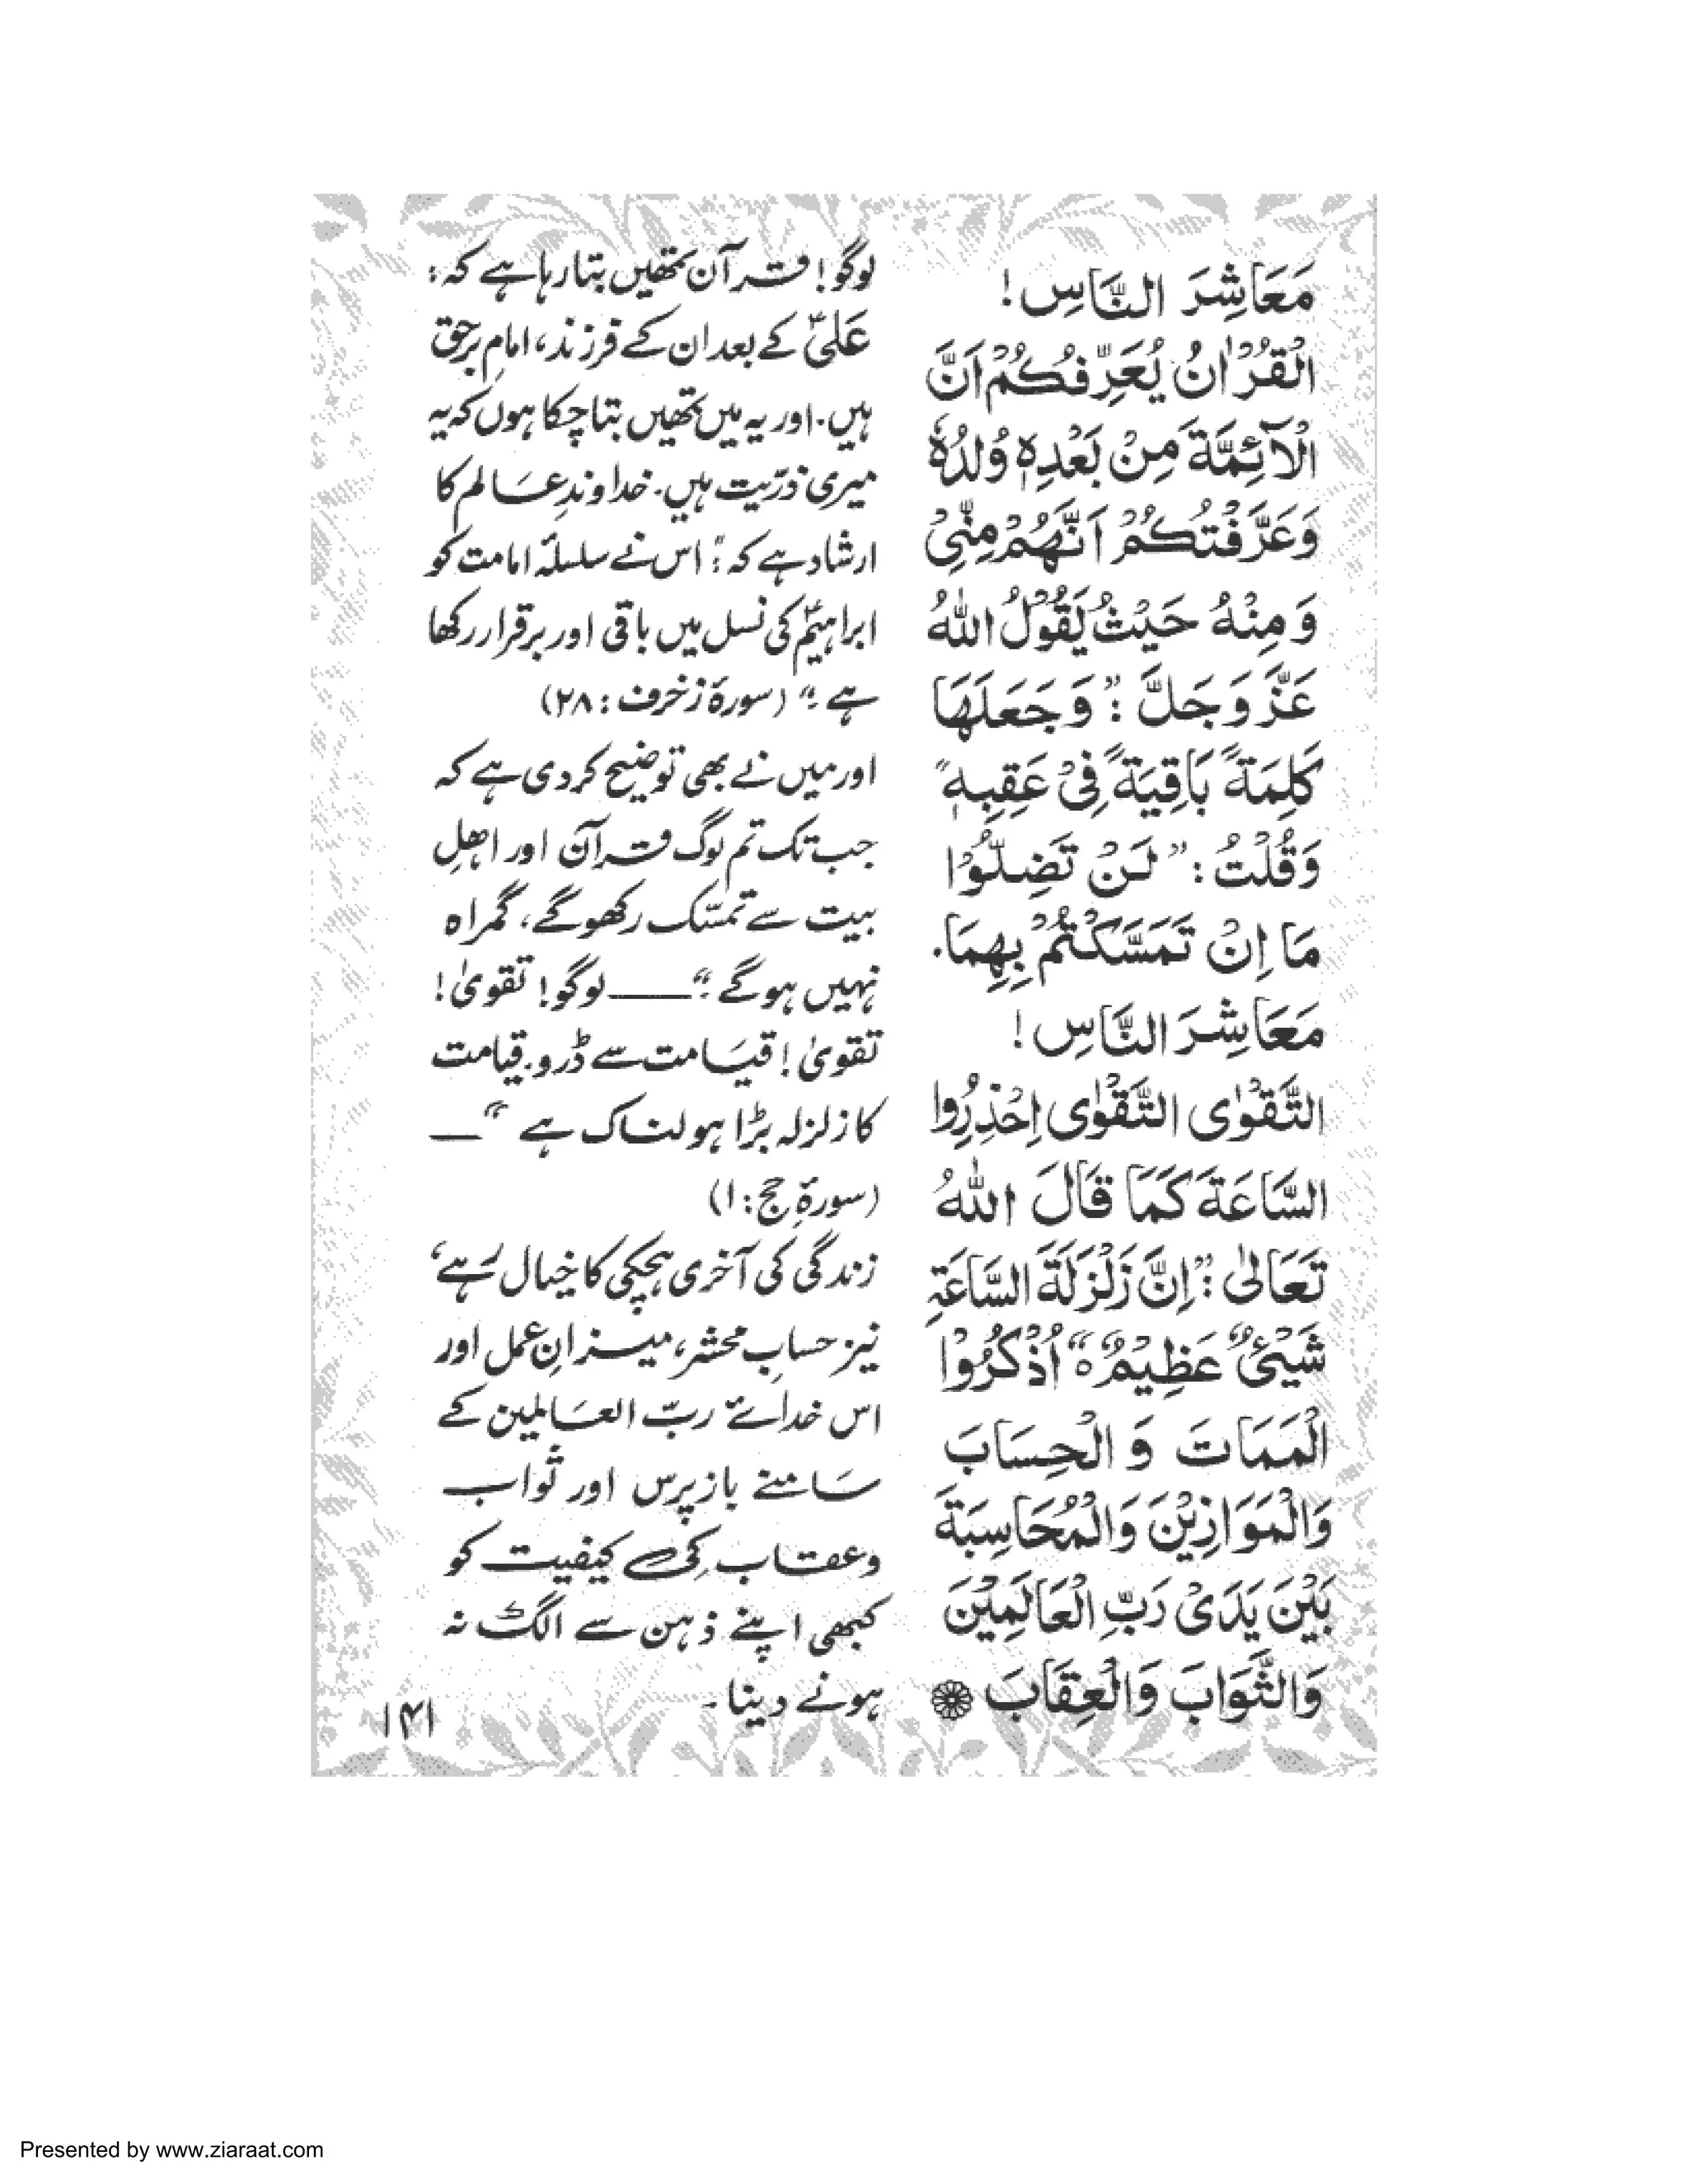 مَعَاشِرَ النَّاسِ!
الْقُرْاٰنُ يُعَرِّفُكُمْ اَنَّ
الْاَئِمَّةَ مِنْ بَعْدِهٖ وُلْدُهٗ
وَعَرَّفْتُكُمْ اَنَّهُمْ مِنِّىْ
وَمِنْهُ حَيْثُ يَقُوْلُ اللّٰهُ
عَزَّ وَجَلَّ: "وَجَعَلَهَا
كَلِمَةً بَاقِيَةً فِىْ عَقِبِهٖ"
وَقُلْتُ: "لَنْ تَضِلُّوْا
مَا اِنْ تَمَسَّكْتُمْ بِهِمَا.
مَعَاشِرَ النَّاسِ!
التَّقْوٰى التَّقْوٰى اِحْذِرُوا
السَّاعَةَ كَمَا قَالَ اللّٰهُ
تَعَالٰى: "اِنَّ زَلْزَلَةَ السَّاعَةِ
شَيْئٌ عَظِيْمٌ ه" اُذْكُرُوْا
الْمَمَاتَ وَ الْحِسَابَ
وَالْمَوَازِيْنَ وَالْمُحَاسِبَةَ
بَيْنَ يَدَىْ رَبِّ الْعَالَمِيْنَ
وَالثَّوَابَ وَالْعِقَابَ
لوگو! قرآن تمھیں بتا رہا ہے کہ:
علیؑ کے بعد ان کے فرزند، امامِ برحق
ہیں۔ اور یہ میں تمھیں بتا چکا ہوں کہ یہ
میری ذرّیت ہیں۔ خداوندِ عالم کا
ارشاد ہے کہ: "اس نے سلسلۂ امامت کو
ابراہیمؑ کی نسل میں باقی اور برقرار رکھا
ہے۔" (سورۂ زخرف: ۲۸)
اور میں نے بھی توضیح کر دی ہے کہ
جب تک تم لوگ قرآن اور اہلِ
بیت سے تمسّک رکھو گے، گمراہ
نہیں ہو گے۔" ــــ لوگو! تقویٰ!
تقویٰ! قیامت سے ڈرو۔ قیامت
کا زلزلہ بڑا ہولناک ہے" ــــ
(سورۂ حج: ۱)
زندگی کی آخری ہچکی کا خیال رہے،
نیز حسابِ محشر، میزانِ عمل اور
اس خدائے ربّ العالمین کے
سامنے باز پرس اور ثواب
و عقاب کی کیفیت کو
کبھی اپنے ذہن سے الگ نہ
ہونے دینا۔
۱۴۱
Presented by www.ziaraat.com